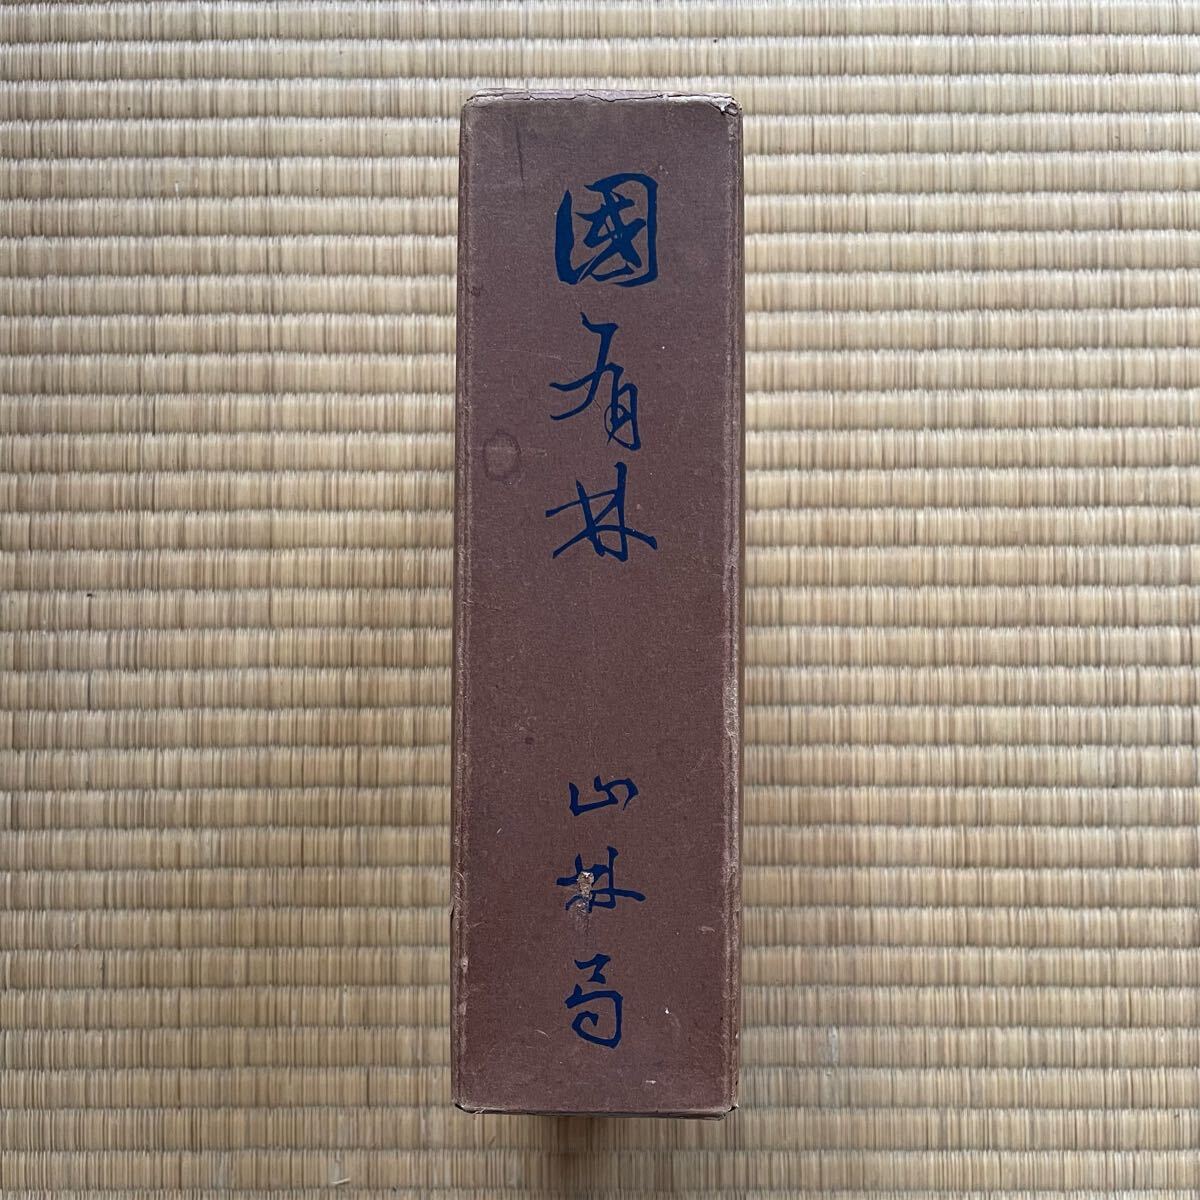 國有林
山林局